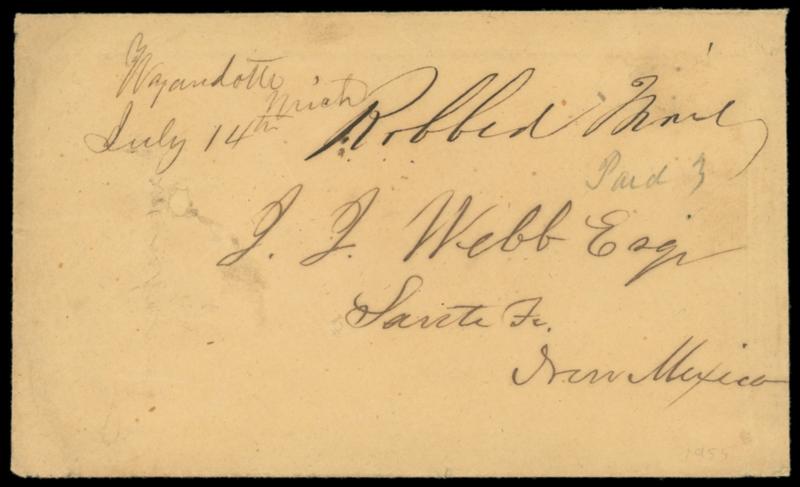 Wayandotte
Mich
July 14th
Robbed Mail
Paid 3
J. J. Webb Esqr
Santa Fe.
New Mexico